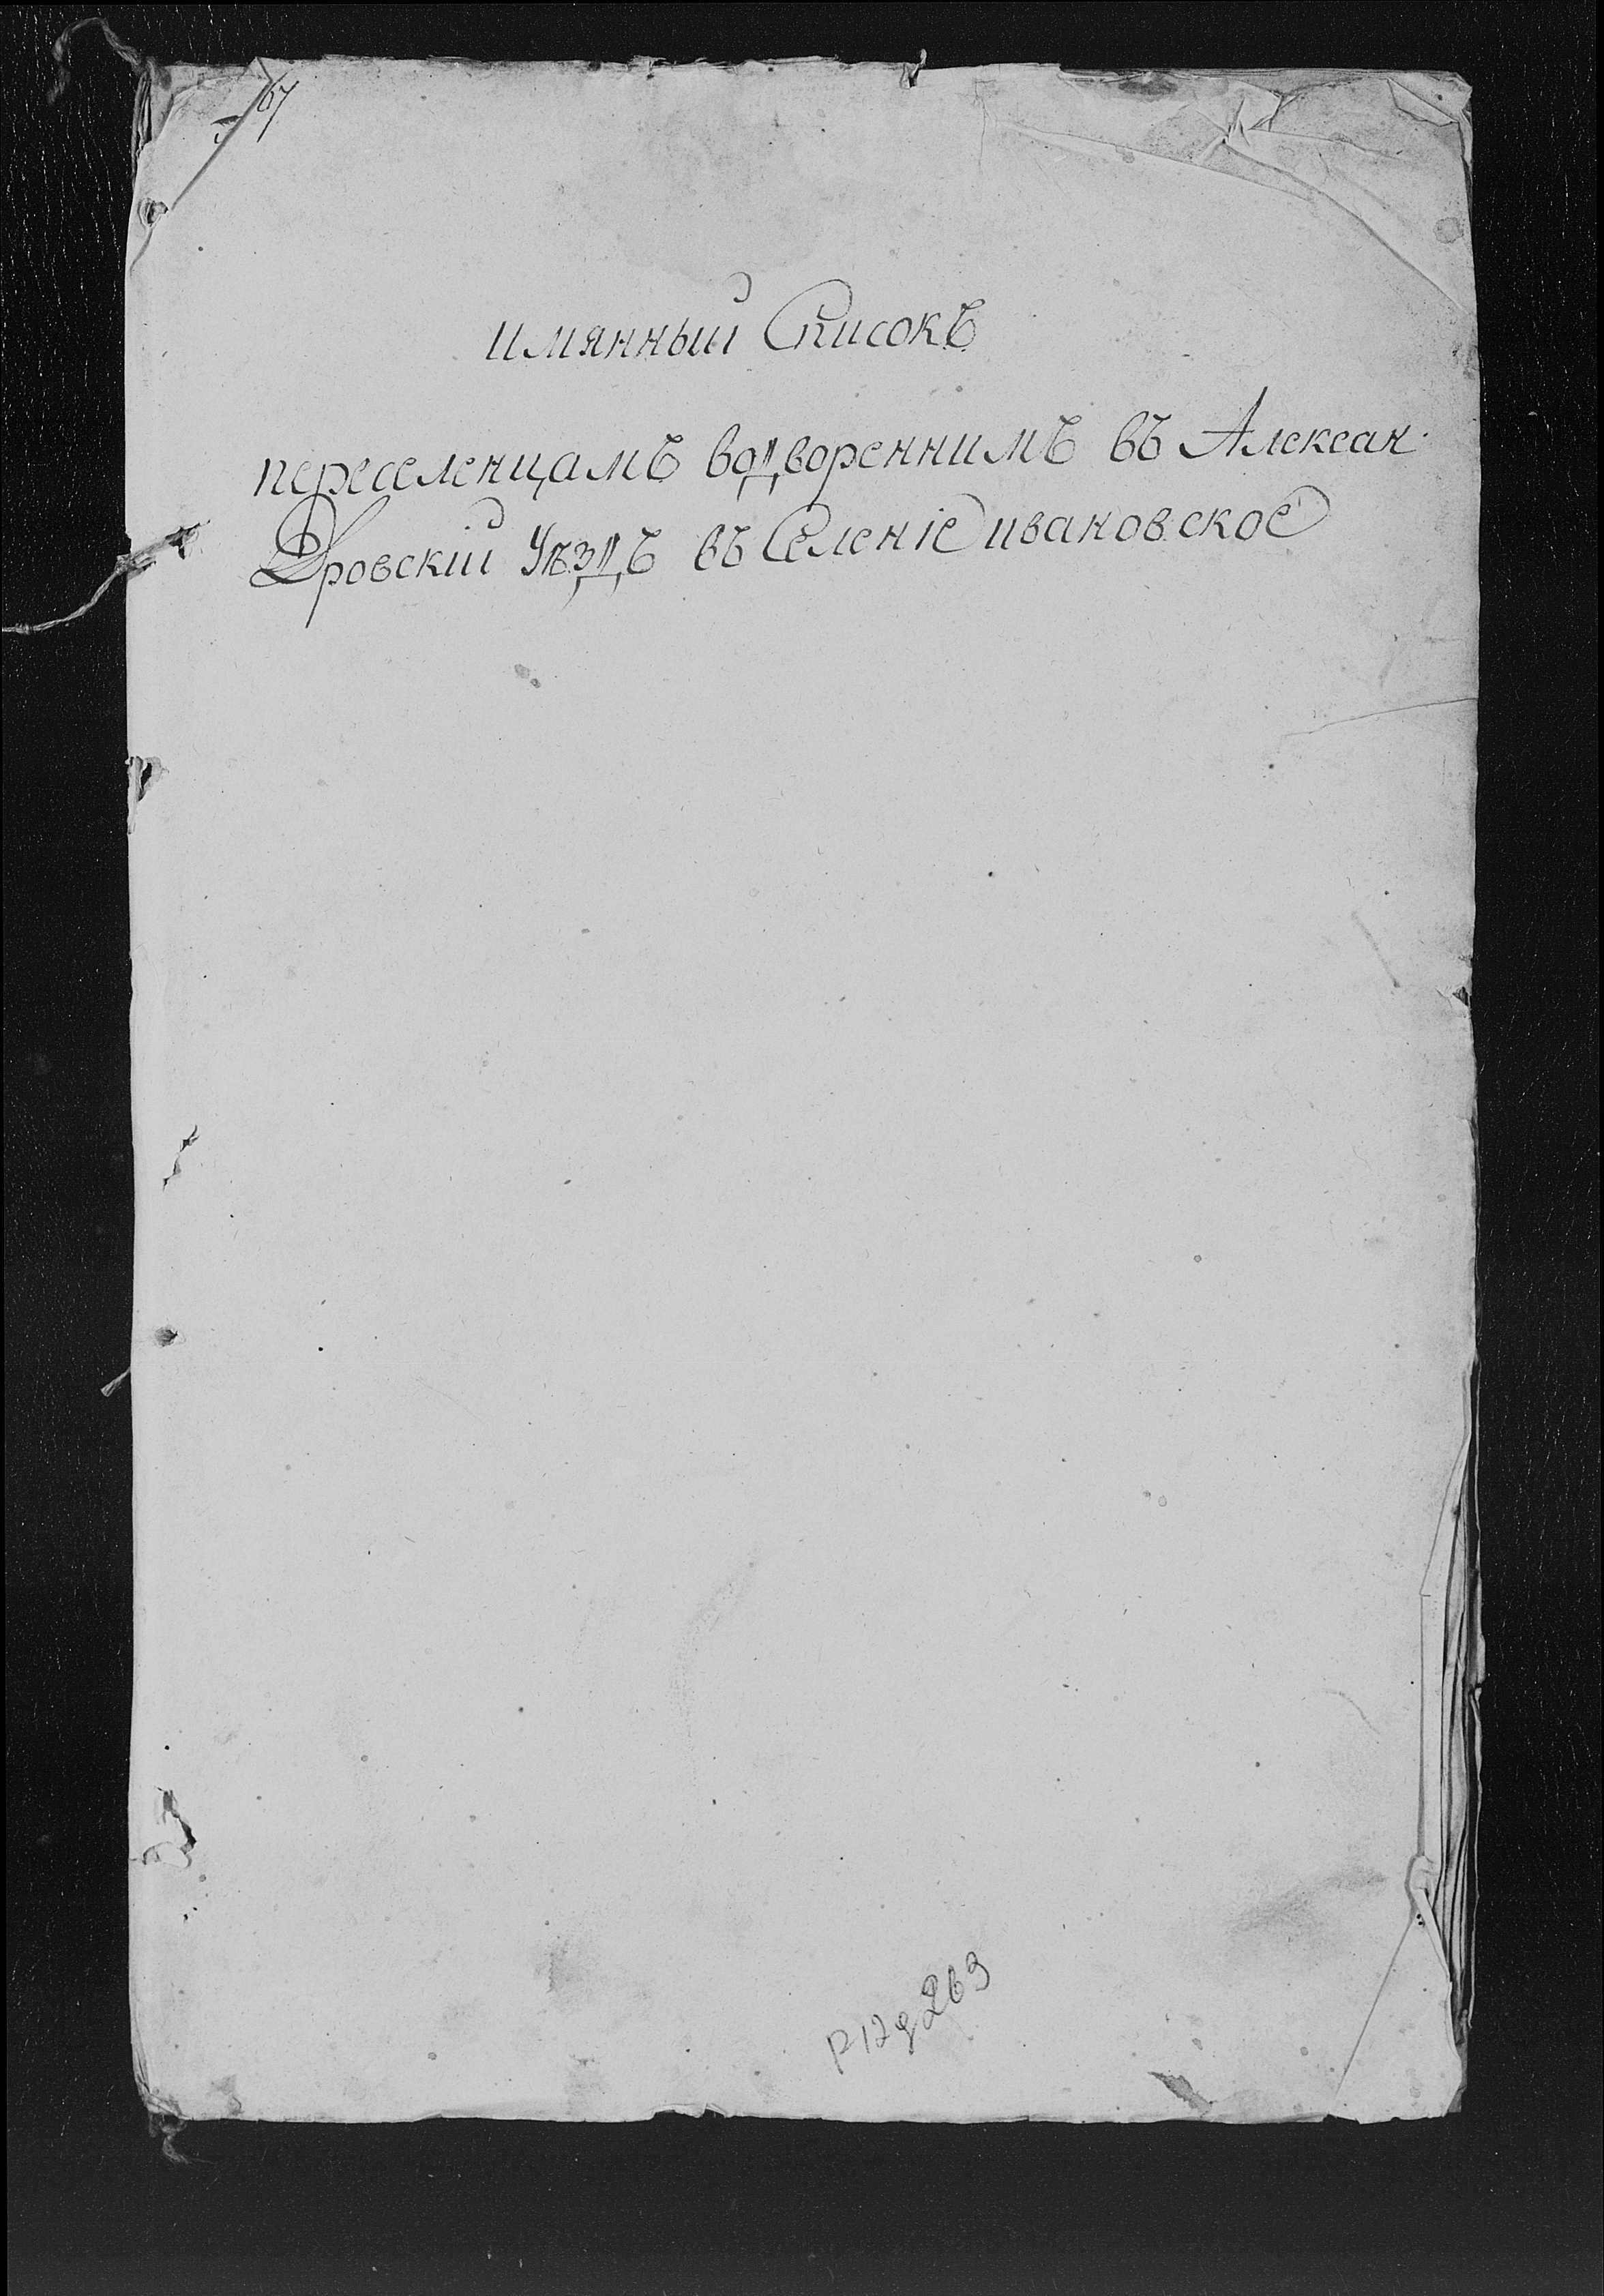 имянный Списокъ
переселенцамъ водвореннимъ въ Алексан-
Дровскій Уѣздъ въ Селеніе ивановское
263